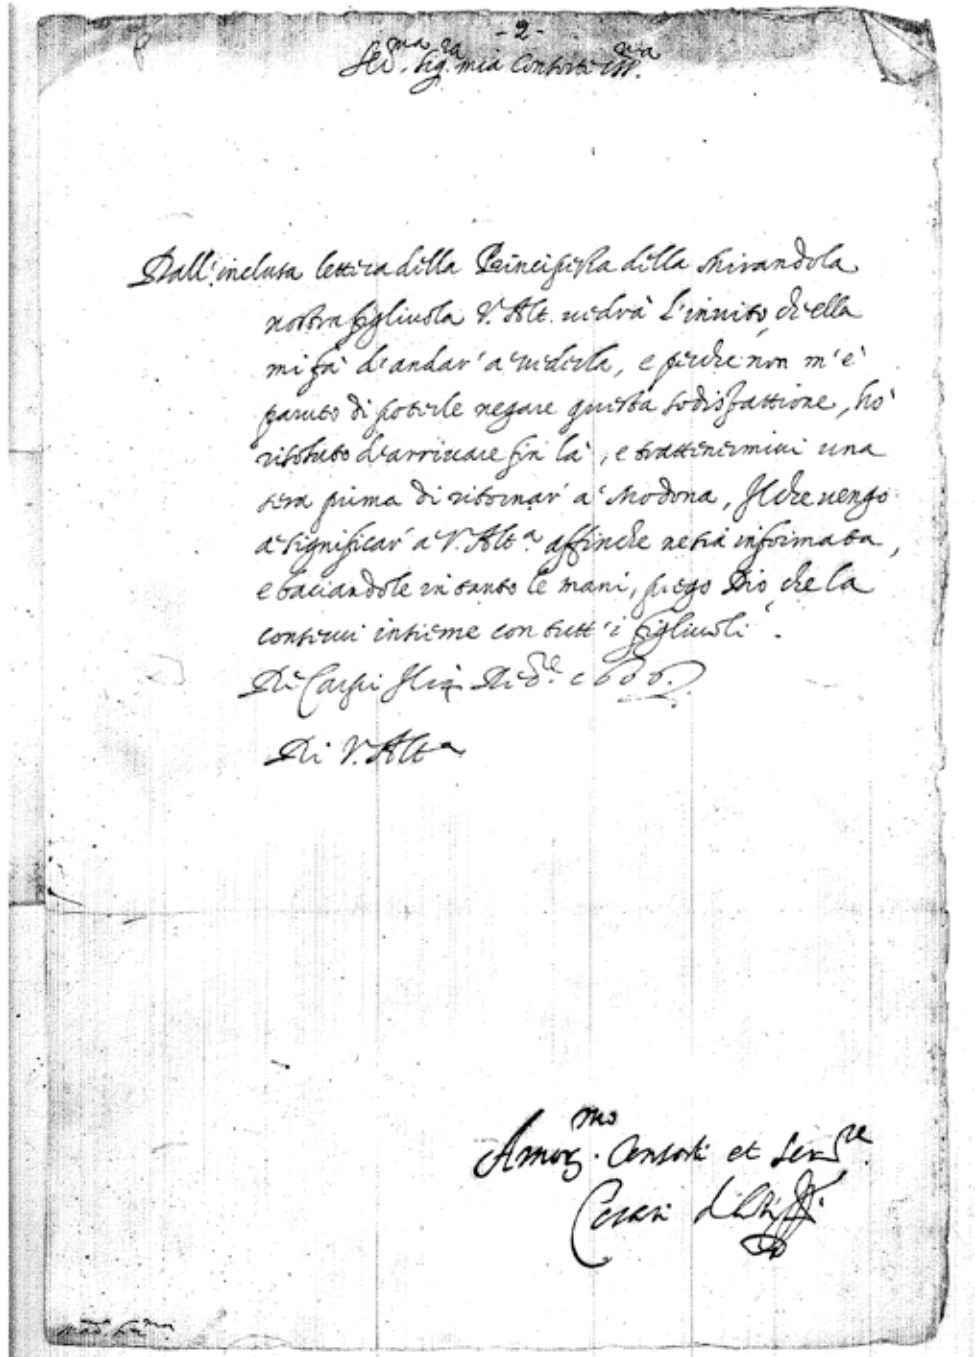 -2-
Ser.ma Sig.ra mia Consorte Oss.ma
Dall'inclusa lettera della Principessa della Mirandola
nostra figliuola V. Alt. uedrà l'inuito, ch'ella
mi fà d'andar' a uederla, e perche non m'è
paruto di poterle negare questa sodisfattione, hò
risoluto d'arriuare fin là, e trattenermiui una
sera prima di ritornar' a Modona, Il che uengo
a significar' a V. Alt.a affinche ne sia informata,
e baciandole in tanto le mani, prego Dio che la
conserui insieme con tutt'i figliuoli.
Di Carpi li Di
Di V. Alt.a
Amor.mo Consorte et Ser.re
Cesare d'Este